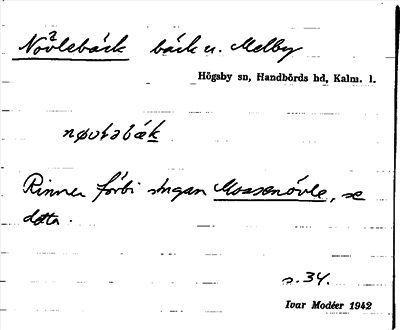 Növlebäck bäck u. Melby
Högsby sn, Handbörds hd, Kalm. l.
Rinner förbi ängan Mossenövle, se
detta.
s. 34.
Ivar Modéer 1942